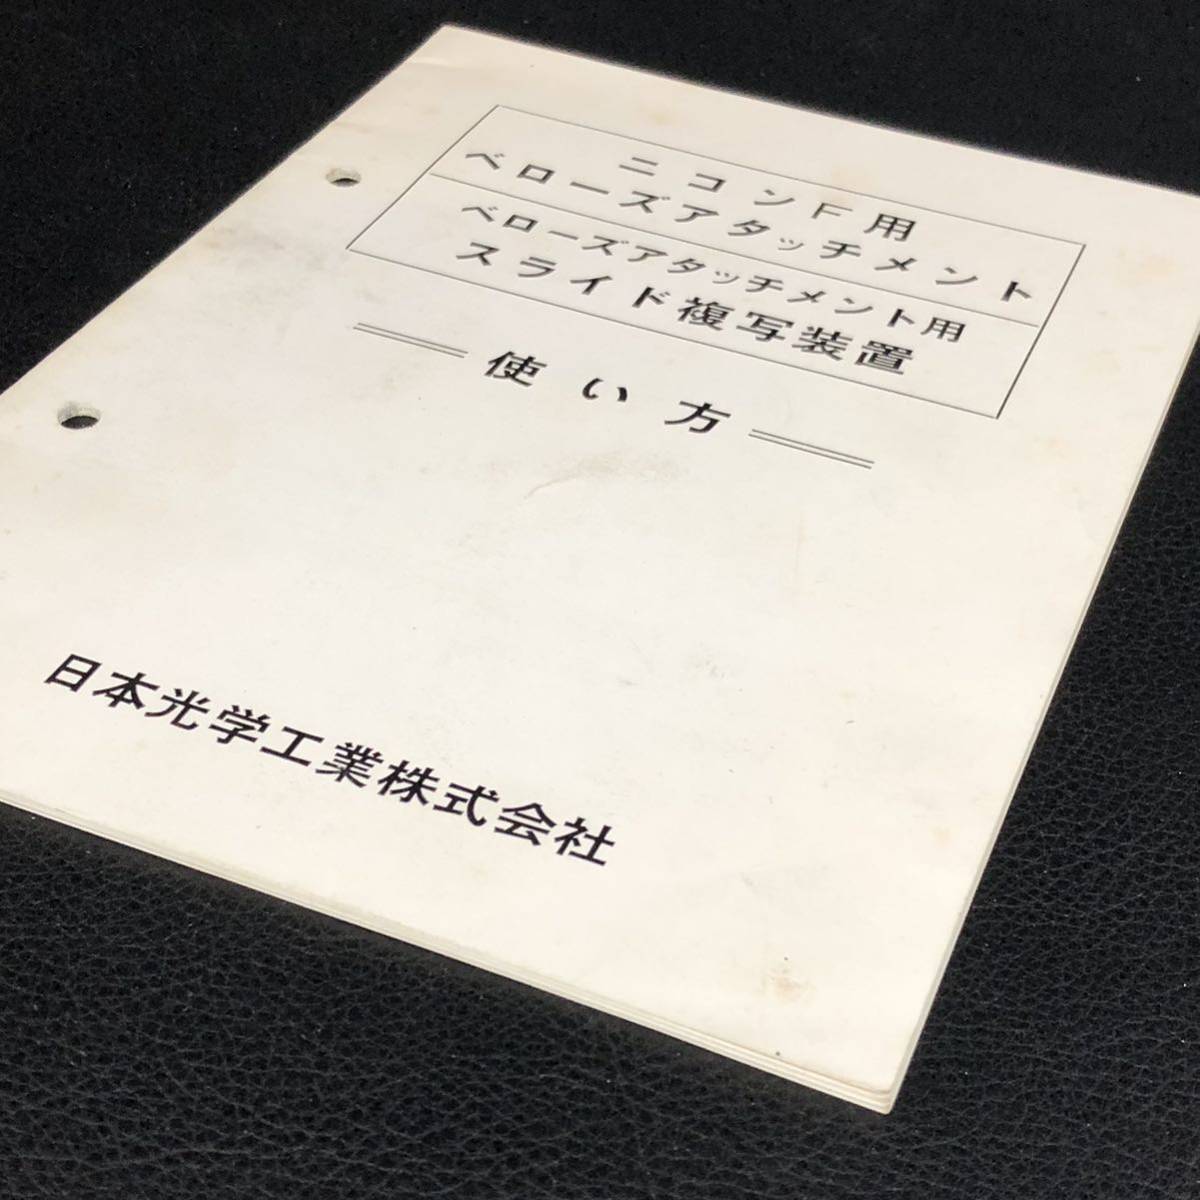 ニコンF用
ベローズアタッチメント
ベローズアタッチメント用
スライド複写装置
使い方
日本光学工業株式会社